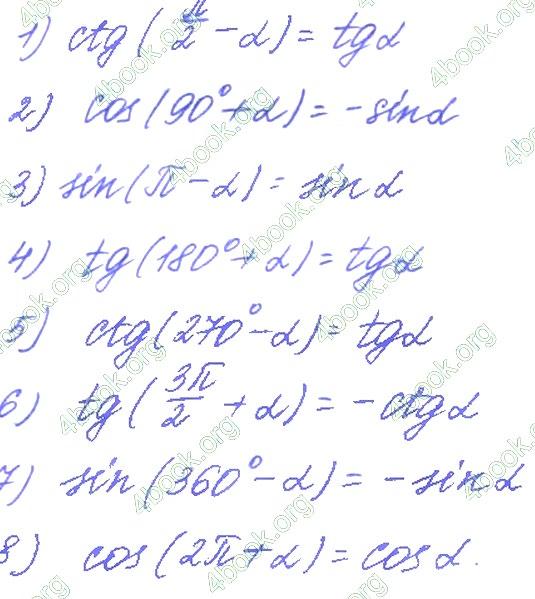 1) ctg(π/2 - α) = tgα
2) cos(90° + α) = -sinα
3) sin(π - α) = sinα
4) tg(180° + α) = tgα
5) ctg(270° - α) = tgα
6) tg(3π/2 + α) = -ctgα
7) sin(360° - α) = -sinα
8) cos(2π + α) = cosα.
4book.org